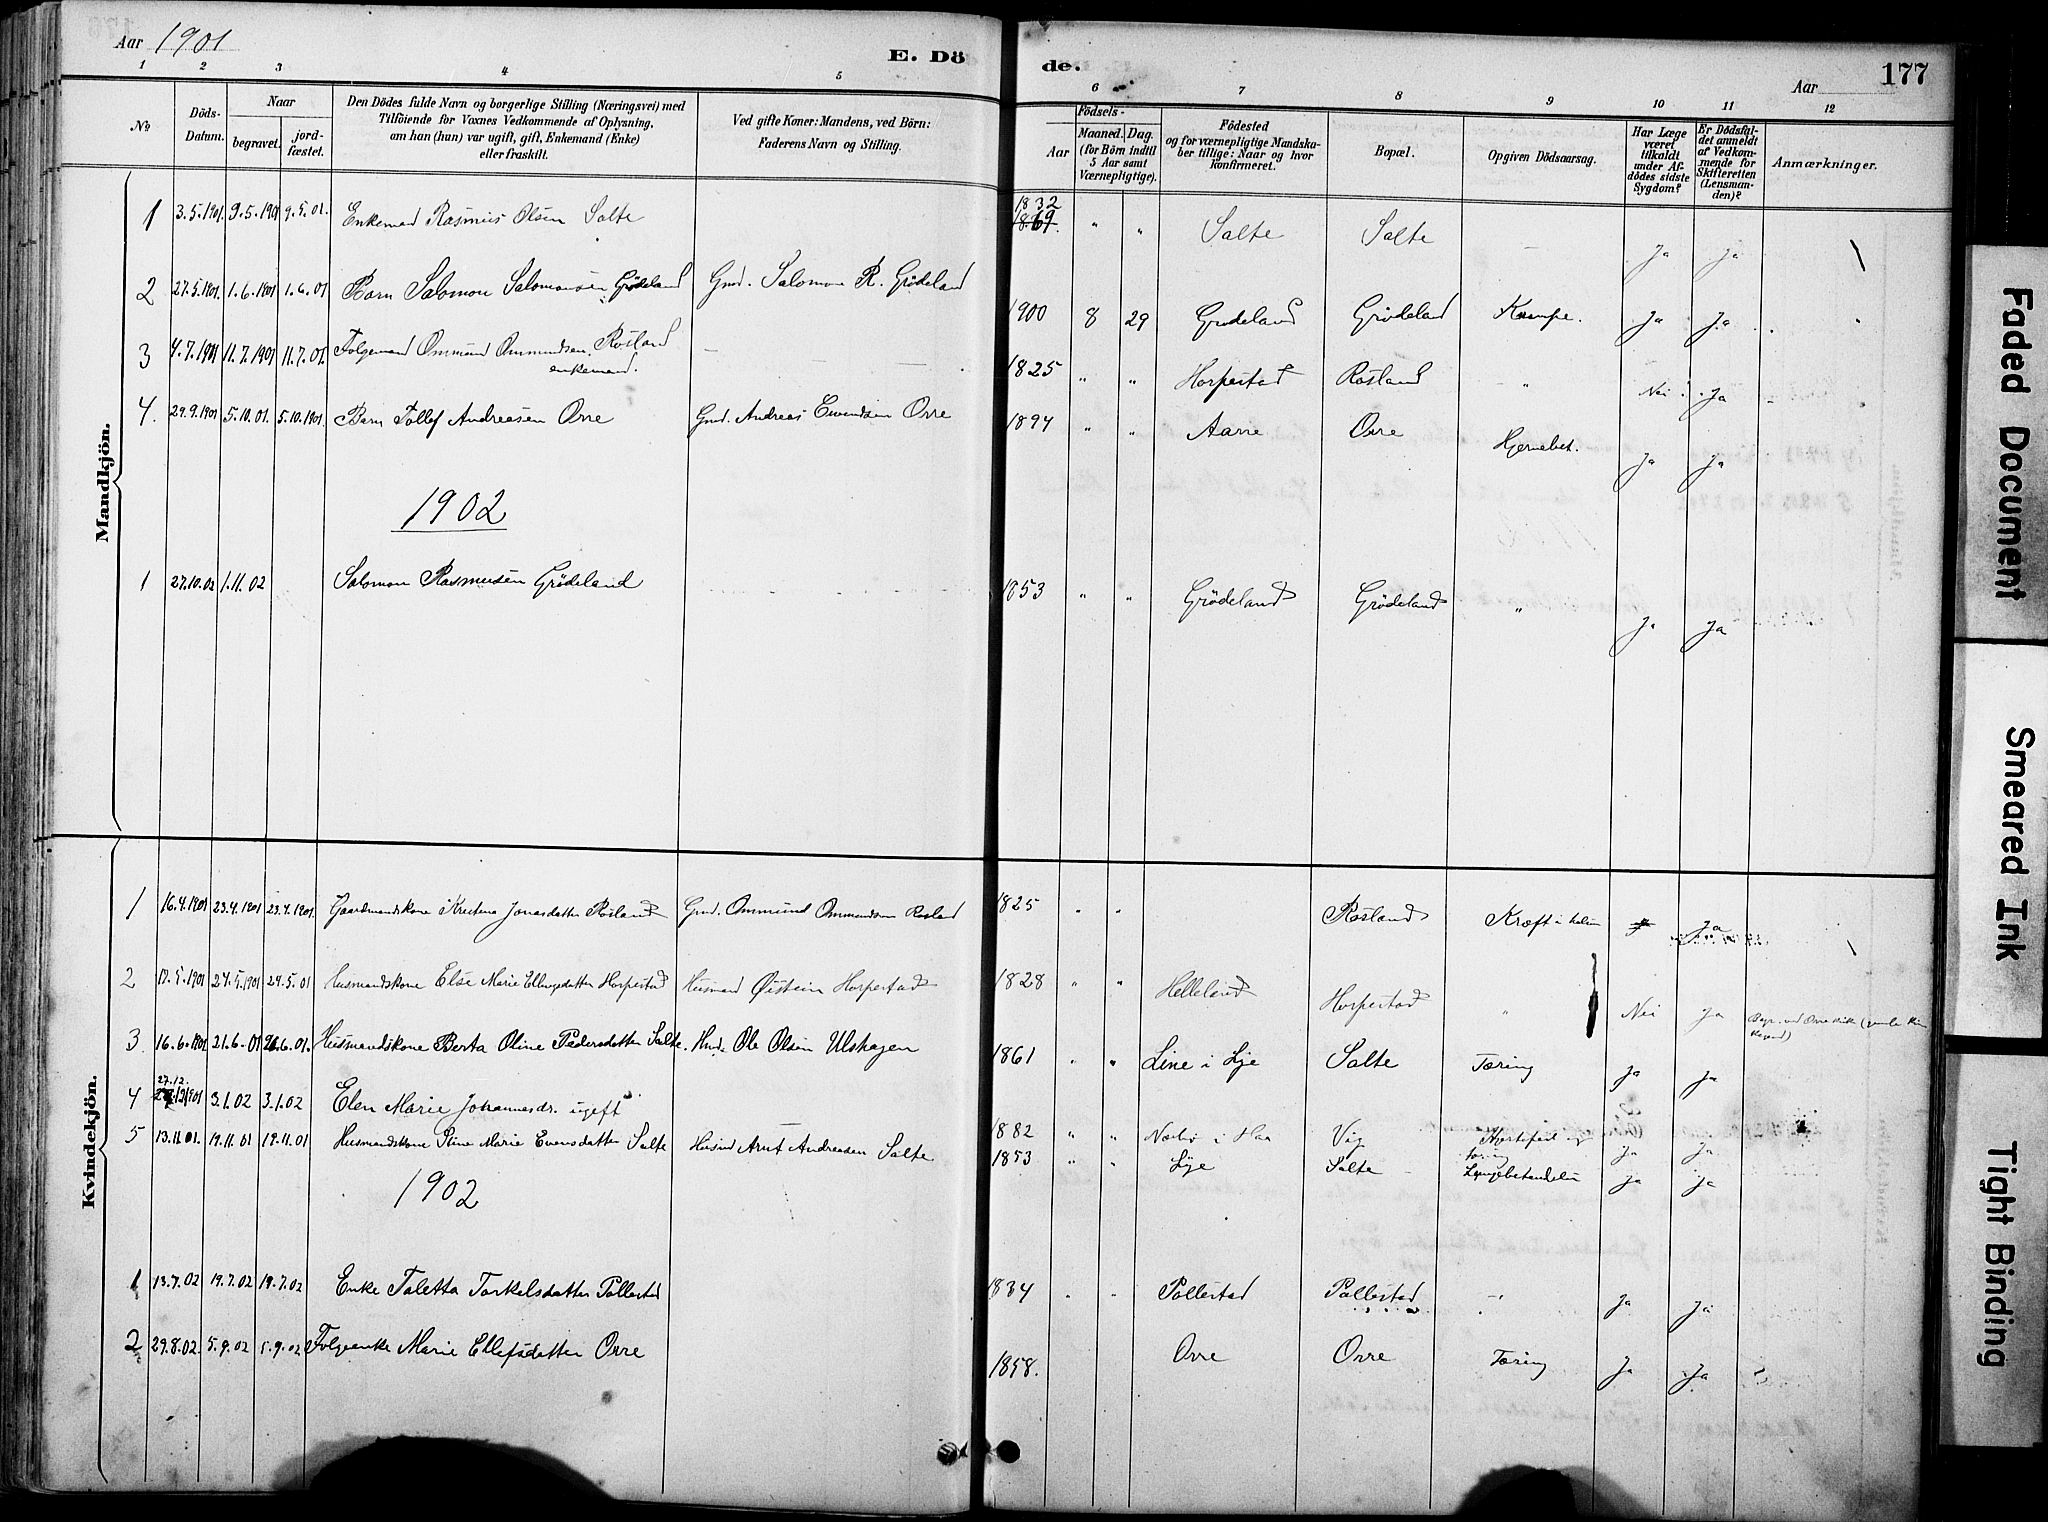 Aar 1901
E. Döde.
Aar
177
1 2 3 4 5 6 7 8 9 10 11 12
No
Döds-Datum.
Naar
begravet.
jordfæstet.
Den Dödes fulde Navn og borgerlige Stilling (Næringsvei) med
Tilföiende for Voxnes Vedkommende af Oplysning,
om han (hun) var ugift, gift, Enkemand (Enke)
eller fraskilt.
Ved gifte Koner: Mandens, ved Börn:
Faderens Navn og Stilling.
Födsels-
Aar
Maaned. Dag.
(for Börn indtil
5 Aar samt
Værnepligtige).
Födested
og for værnepligtige Mandska-
ber tillige: Naar og hvor
konfirmeret.
Bopæl.
Opgiven Dödsaarsag.
Har Læge
været
tilkaldt
under Af-
dödes sidste
Sygdom?
Er Dödsfal-
det anmeldt
af Vedkom-
mende for
Skifteretten
(Lensman-
den)?
Anmærkninger.
Mandkjön.
1 3.5.1901. 9.5.1901 9.5.01. Enkemand Rasmus Olsen Salte 1832 1869. " " Salte Salte — Ja Ja
2 27.5.1901. 1.6.1901 1.6.01 Barn Salomon Salomonsen Grödeland Gmd. Salomon R. Grödeland 1900 8 29 Grödeland Grödeland Krampe. Ja Ja
3 4.7.1901 11.7.1901 11.7.01. Folgemand Ommund Ommundsen Rosland enkemand. — 1825 " " Horpestad Rosland " Nei Ja
4. 29.9.1901 5.10.01. 5.10.1901. Barn Tollef Andreasen Orre Gmd. Andreas Evendsen Orre 1894 " " Aarre Orre Hjernebet. Ja Ja
1902
1 27.10.02 1.11.02 Salomon Rasmusen Grödeland 1853 " " Grödeland Grödeland " Ja Ja
Kvindekjön.
1 16.4.1901 23.4.1901 23.4.1901. Gaardmandskone Kristina Jonasdatter Rosland Gmd. Ommund Ommundsen Rosland 1825 " " Rosland Kræft i Ja
2 17.5.1901 24.5.1901 24.5.01 Husmandskone Else Marie Ellingsdatter Horpestad Husmand Østein Horpestad 1828 " " Helleland Horpestad " Nei Ja Begr. ved Orre
3 16.6.1901 21.6.01 26.6.01. Husmandskone Berta Oline Pedersdatter Salte. Husm. Ole Olsen Ulshagen 1861 " " Line i Lye Salte Tæring Ja Ja
4 27.12. 1901 3.1.02 3.1.02 Elen Marie Johannesdr. ugift 1882 " " Nærbø i Haa Vig Hjertefeil og tæring Ja Ja
5 13.11.01. 19.11.01 19.11.01 Husmandskone Stine Marie Evensdatter Salte Husmd Arnt Andreasen Salte 1853 " " Lye Salte Ja Ja
1902
1 13.7.02 19.7.02 19.7.02 Enke Taletta Torkelsdatter Pollestad 1834 " " Pollestad Pollestad — Ja Ja
2 29.8.02. 5.9.02 5.9.02 Folgeenke Marie Ellefsdatter Orre 1858. Orre Orre Tæring Ja Ja
Faded Document
Smeared Ink
Tight Binding